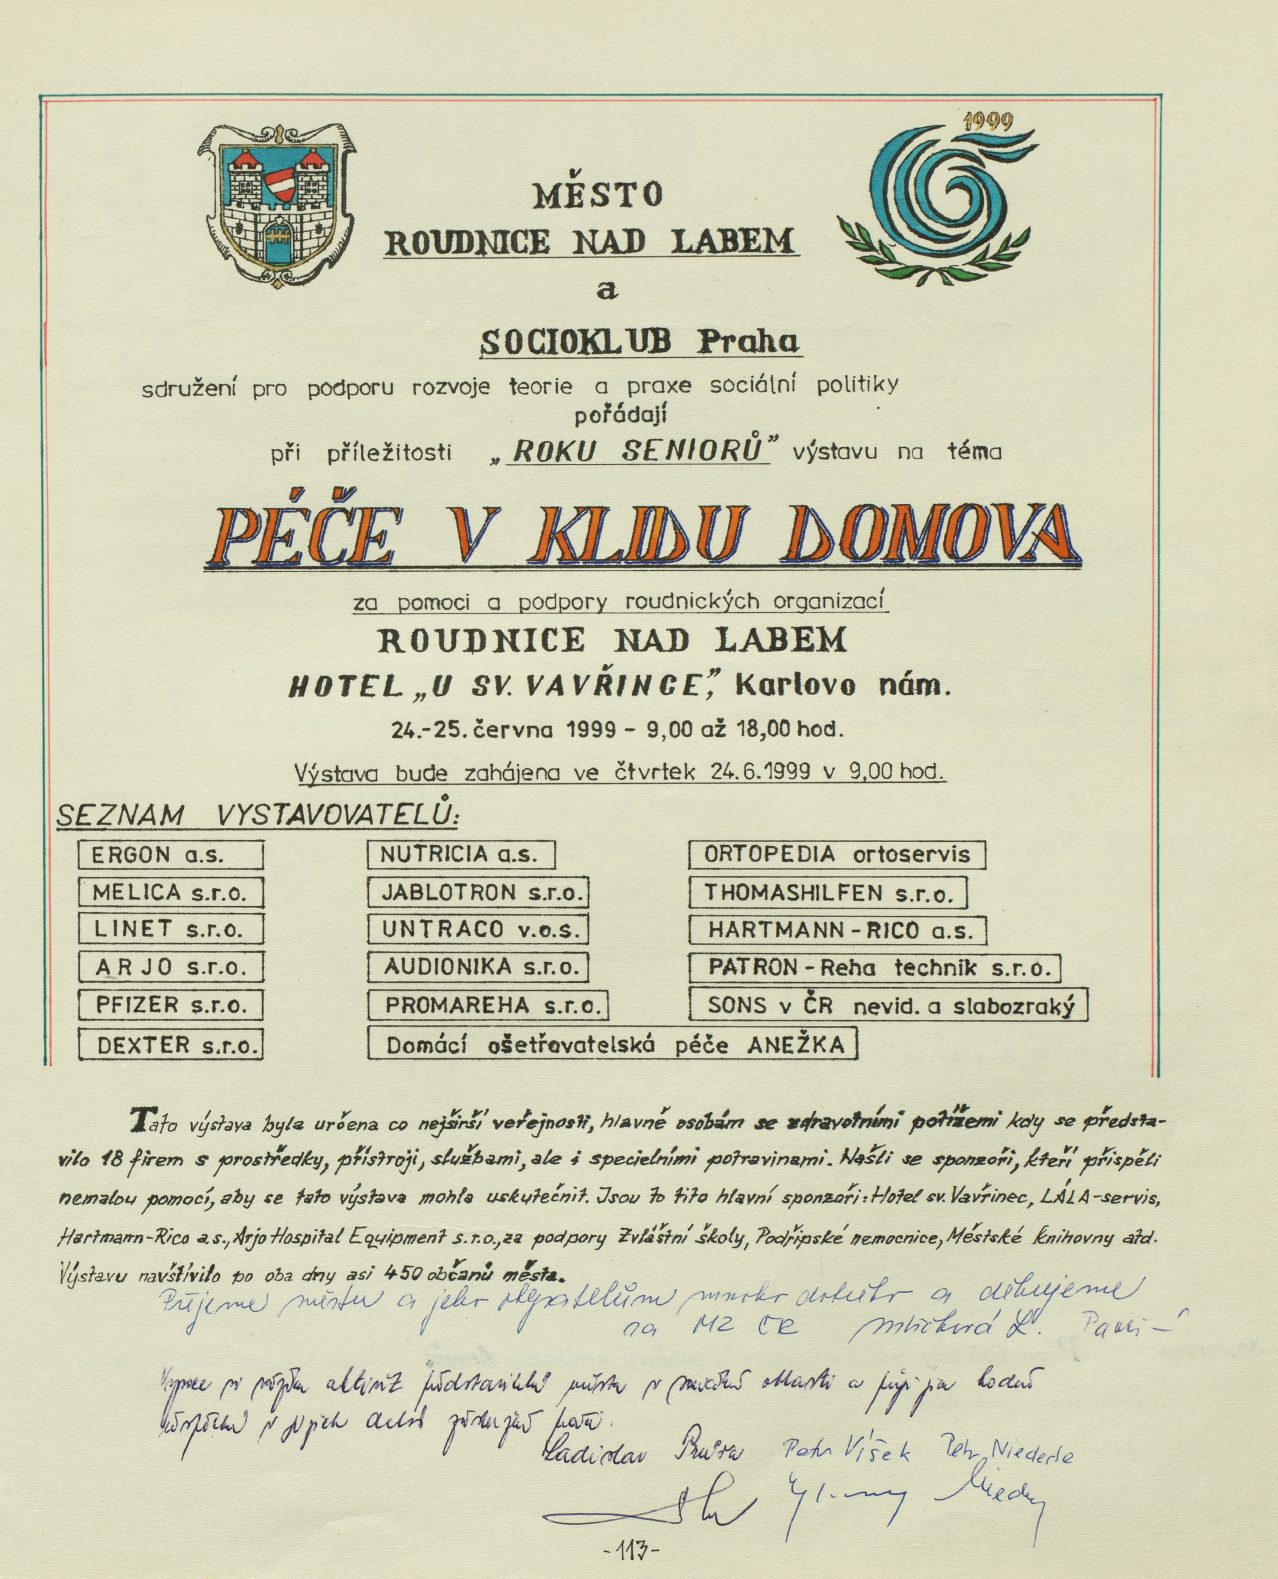 1999
MĚSTO
ROUDNICE NAD LABEM
a
SOCIOKLUB Praha
sdružení pro podporu rozvoje teorie a praxe sociální politiky
pořádají
při příležitosti „ROKU SENIORŮ” výstavu na téma
PÉČE V KLIDU DOMOVA
za pomoci a podpory roudnických organizací
ROUDNICE NAD LABEM
HOTEL „U SV. VAVŘINCE”, Karlovo nám.
24.-25. června 1999 - 9,00 až 18,00 hod.
Výstava bude zahájena ve čtvrtek 24.6.1999 v 9,00 hod.
SEZNAM VYSTAVOVATELŮ:
ERGON a.s. NUTRICIA a.s. ORTOPEDIA ortoservis
MELICA s.r.o. JABLOTRON s.r.o. THOMASHILFEN s.r.o.
LINET s.r.o. UNTRACO v.o.s. HARTMANN-RICO a.s.
ARJO s.r.o. AUDIONIKA s.r.o. PATRON-Reha technik s.r.o.
PFIZER s.r.o. PROMAREHA s.r.o. SONS v ČR nevid. a slabozraký
DEXTER s.r.o. Domácí ošetřovatelská péče ANEŽKA
Tato výstava byla určena co nejširší veřejnosti, hlavně osobám se zdravotními potížemi kdy se předsta-
vilo 18 firem s prostředky, přístroji, službami, ale i specielními potravinami. Našli se sponzoři, kteří přispěli
nemalou pomocí, aby se tato výstava mohla uskutečnit. Jsou to tito hlavní sponzoři: Hotel sv. Vavřinec, LÁLA-servis,
Hartmann-Rico a.s., Arjo Hospital Equipment s.r.o., za podpory Zvláštní školy, Podřipské nemocnice, Městské knihovny atd.
Výstavu navštívilo po oba dny asi 450 občanů města.
Přejeme městu a jeho obyvatelům mnoho dobrého a děkujeme
za MZ ČR
představitelů města v sociální oblasti a
v jejich další práci.
Ladislav Průša Petr Víšek Petr Niederle
-113-